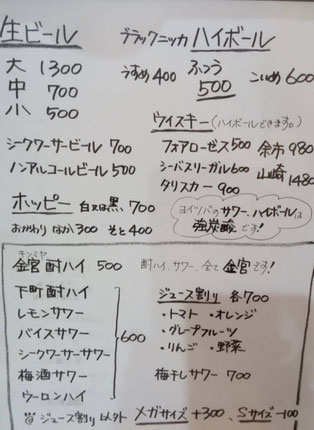 生ビール
大 1300
中 700
小 500
シークワーサービール 700
ノンアルコールビール 500
ホッピー 白又は黒 700
おかわり なか 300 そと 400
ブラックニッカ ハイボール
うすめ 400 ふつう 500 こいめ 600
ウイスキー (ハイボールできます。)
フォアローゼス 500 余市 980
シーバスリーガル 600 山崎 1480
タリスカー 900
ヨイツバのサワー、ハイボールは
強炭酸です!
キンミヤ
金宮 酎ハイ 500 酎ハイ、サワー、全て金宮です!
下町酎ハイ
レモンサワー
バイスサワー
シークワーサーサワー
梅酒サワー
ウーロンハイ
600
ジュース割り 各700
・トマト ・オレンジ
・グレープフルーツ
・りんご ・野菜
梅干しサワー 700
ジュース割り以外 メガサイズ +300、Sサイズ -100